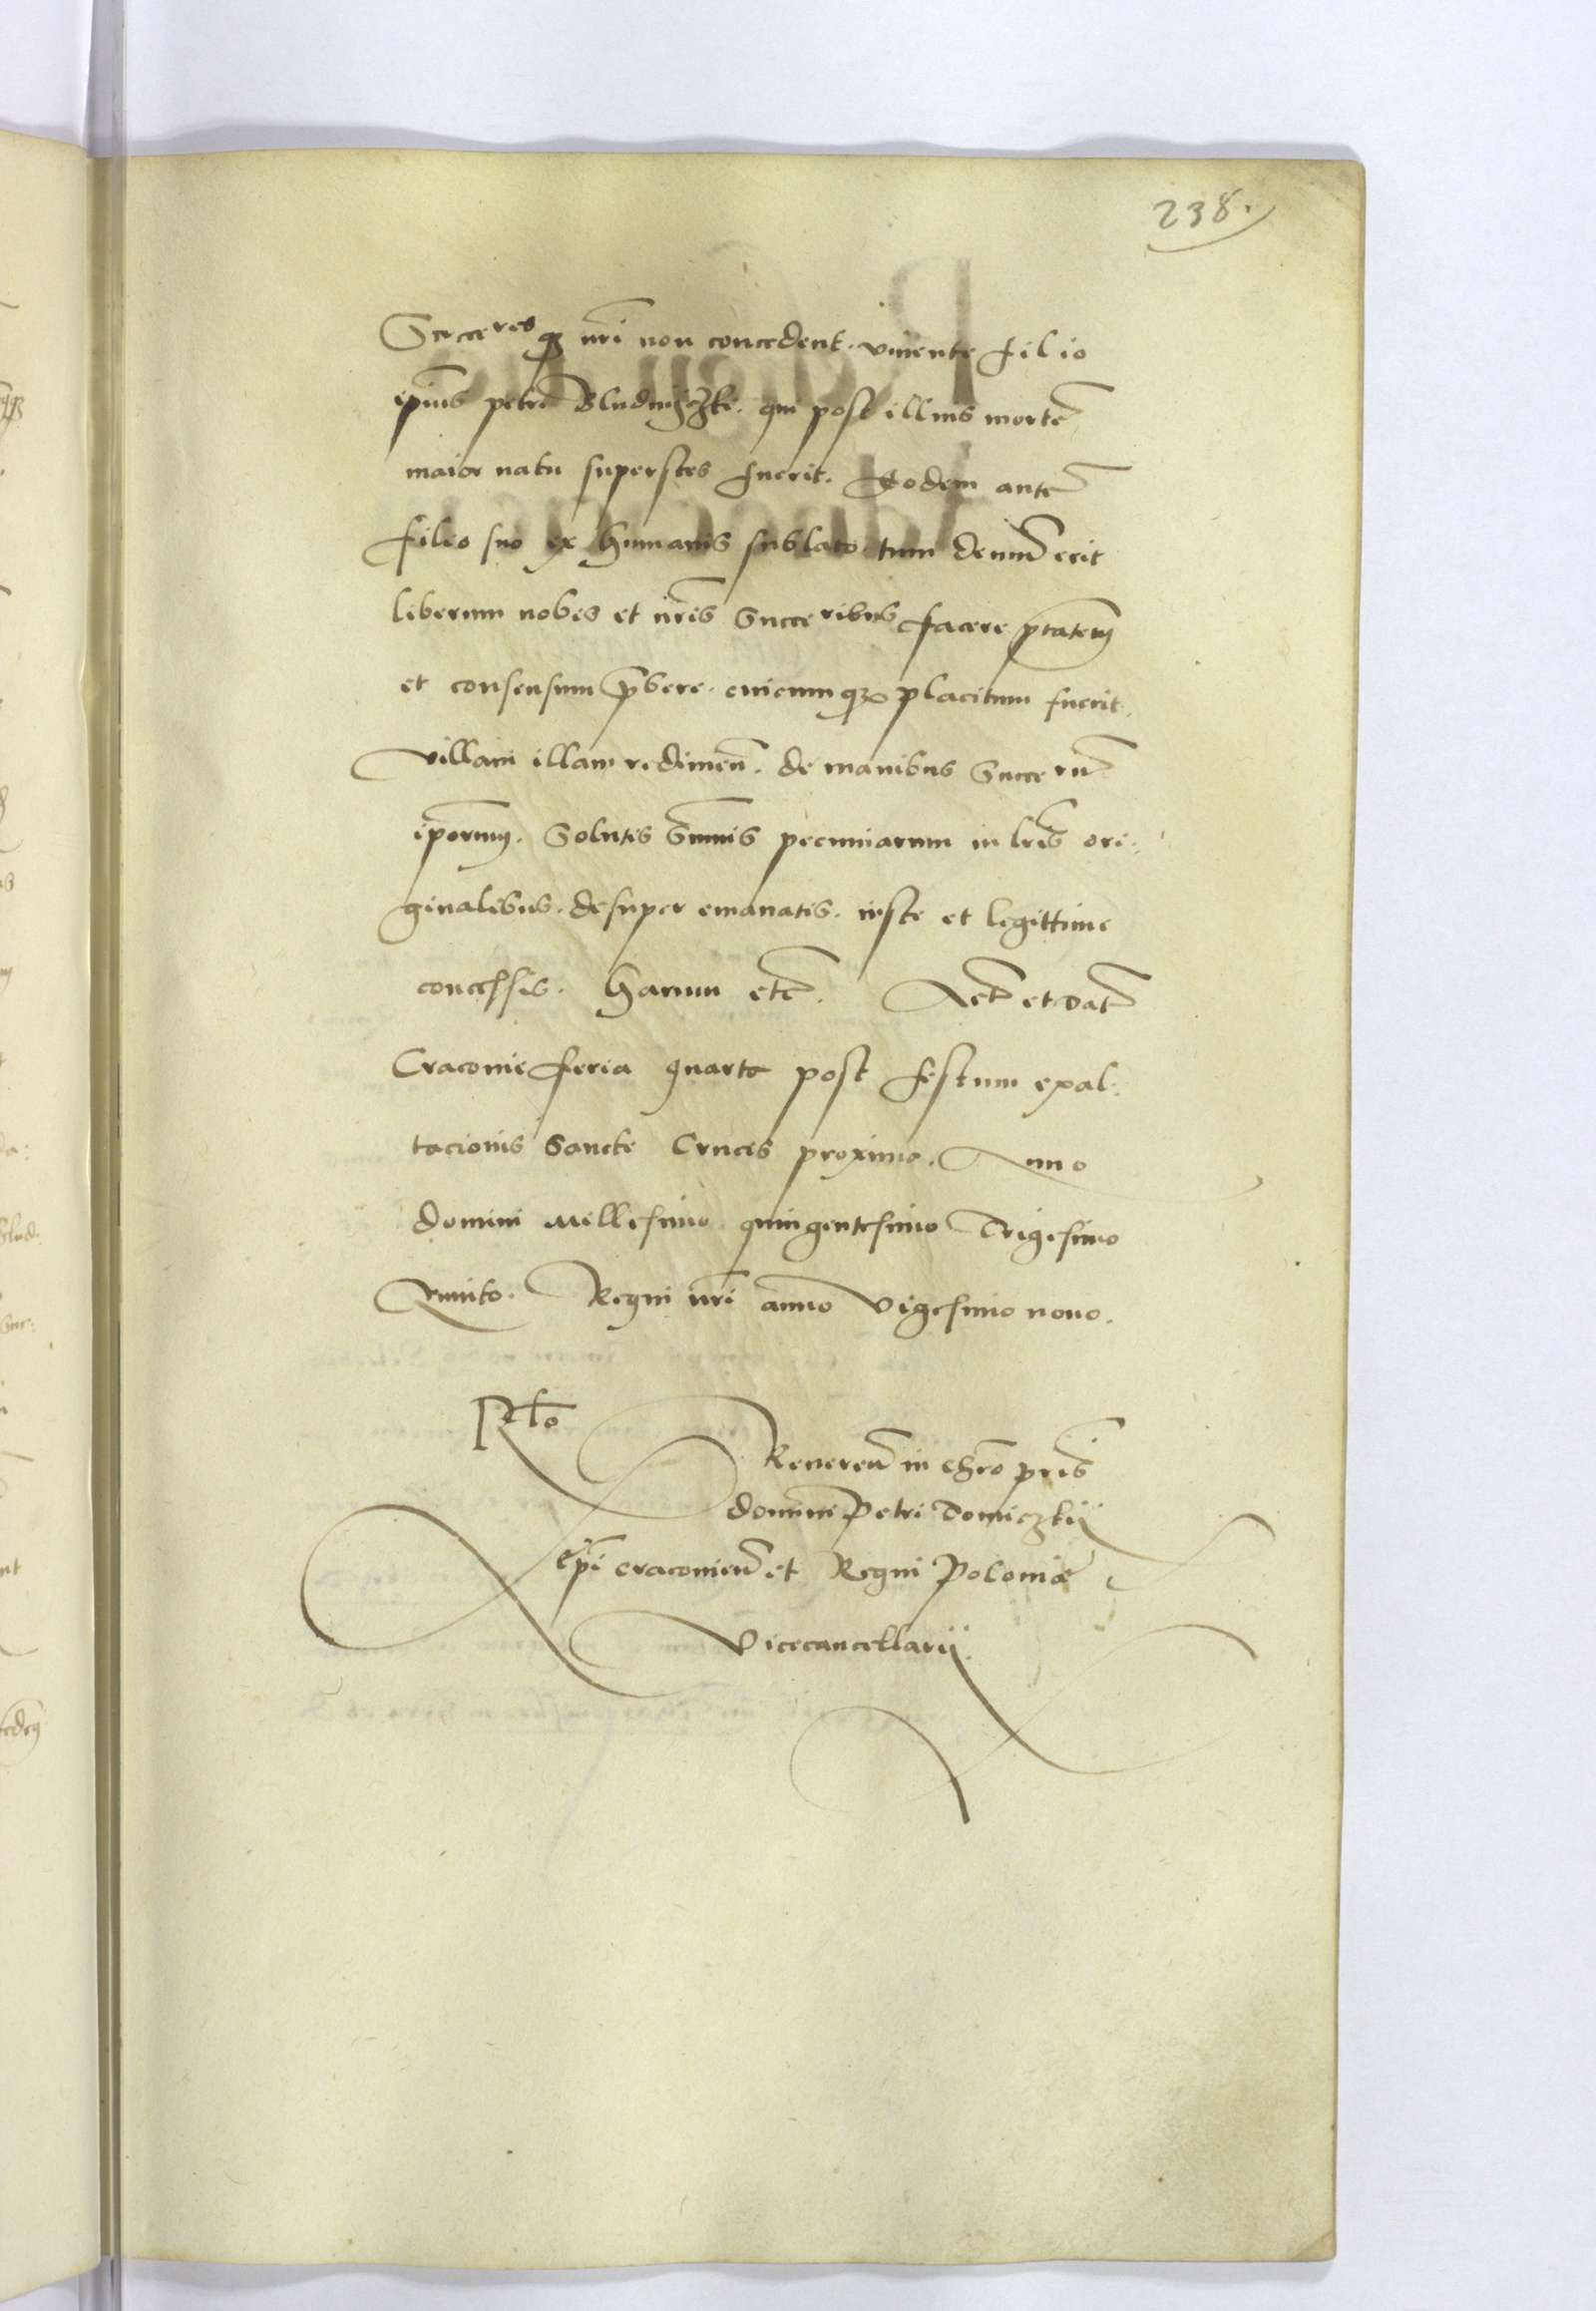 238.
Succeresq₃ nri non concedent. viuente filio
ipius petri Bludnyczki. qui post illius morte
maior natu superstes fuerit. Eodem aute
filio suo ex humanis sublato. tum demu erit
liberum nobis et nris Succeribus facere ptatem
et consensum pbere. cuicumq₃ placitum fuerit
villam illam redimen. de manibus Succeru
iporum. Solutis Summis pecuniarum in lris ori:
ginalibus. desuper emanatis. iuste et legittime
concessis. Harum etc. Act et dat
Cracouie feria quarta post festum exal:
tacionis Sancte Crucis proximo. Anno
domini Millesimo quingentesimo Trigesimo
Quinto. Regni nri anno Vigesimo nono.
Rlo
Reueren in chro pris
domini Petri Tomiczkij
epi cracouien et Regni Polonie
Vicecancellarij.